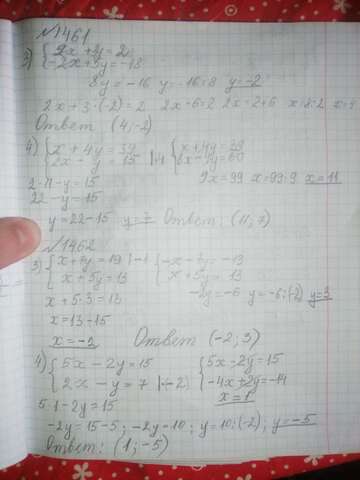 №1461
3) { 2x + 3y = 2
{ -2x + 5y = -18
8y = -16 y = -16:8 y = -2
2x + 3·(-2) = 2 2x - 6 = 2 2x = 2+6 x = 8:2
Ответ (4; -2)
4) { x + 4y = 39 { x + 4y = 39
{ 2x - y = 15 |·4
9x = 99 x = 99:9 x = 11
2·11 - y = 15
22 - y = 15
y = 22 - 15 y = 7 Ответ: (11; 7)
№1462
3) {
{ x + 5y = 13 { x + 5y = 13
-2y = -6 y = -6:(-2) y = 3
x + 5·3 = 13
x = 13 - 15
x = -2 Ответ (-2; 3)
4) { 5x - 2y = 15 { 5x - 2y = 15
{ 2x - y = 7 |·(-2) { -4x + 2y = -14
x = 1
5·1 - 2y = 15
-2y = 15 - 5; -2y = 10; y = 10:(-2); y = -5
Ответ: (1; -5)